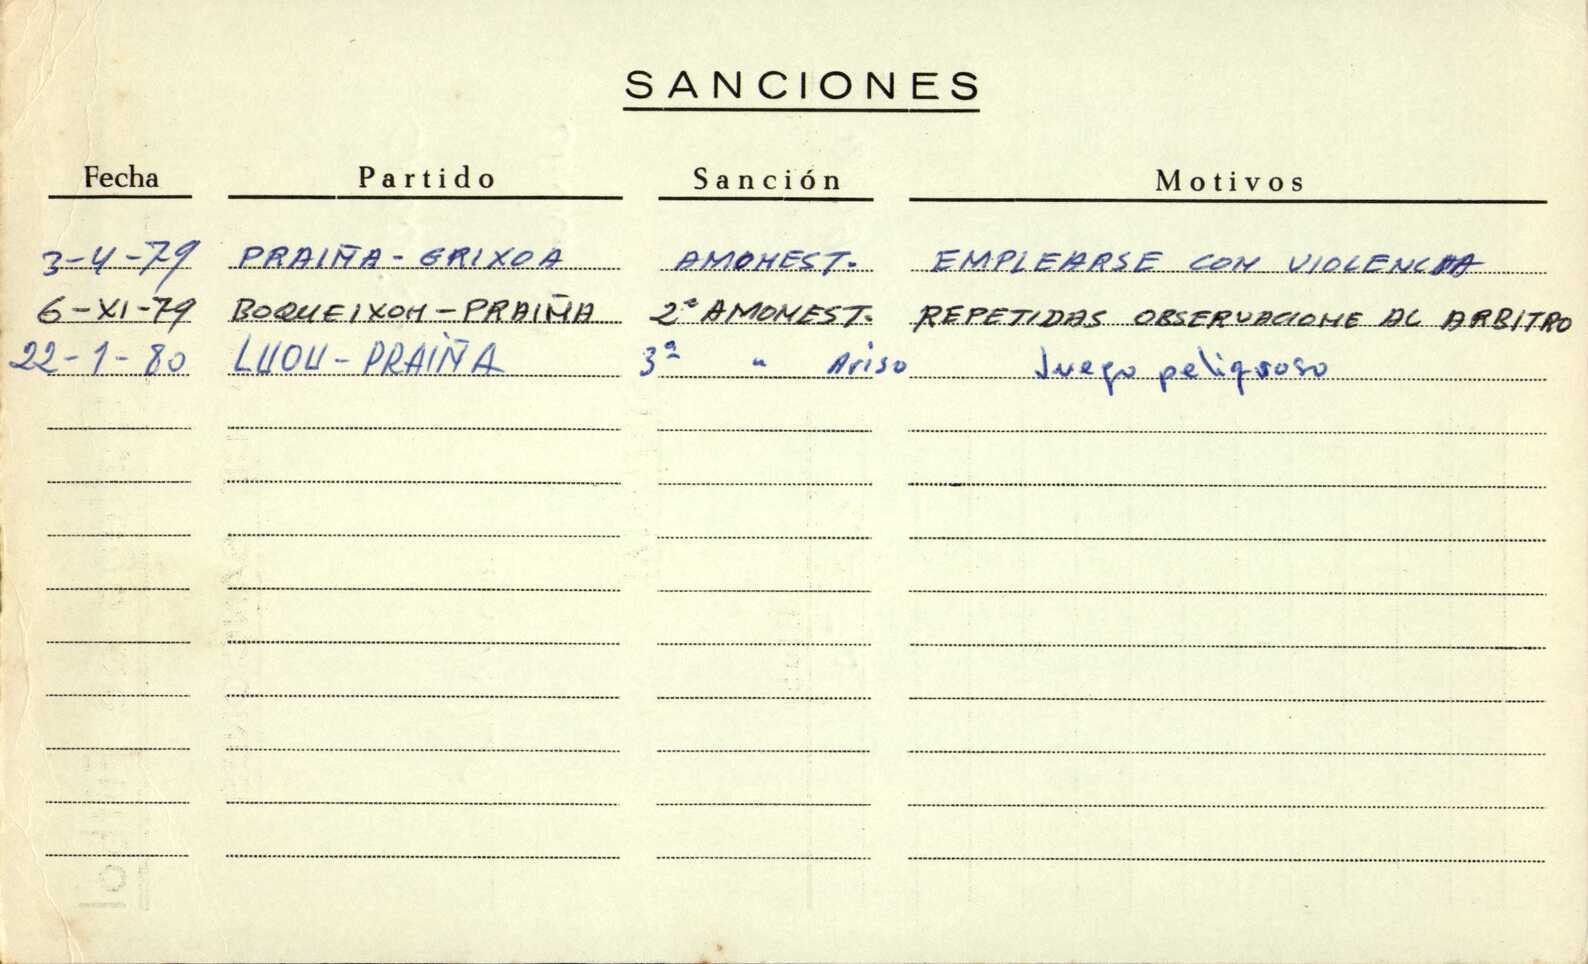 SANCIONES
Fecha Partido Sanción Motivos
3-4-79 PRAIÑA - GRIXOA AMONEST. EMPLEARSE CON VIOLENCIA
6-XI-79 BOQUEIXON - PRAIÑA 2ª AMONEST. REPETIDAS OBSERVACIONE AL ARBITRO
22-1-80 LUOU - PRAIÑA 3ª " Aviso Juego peligroso